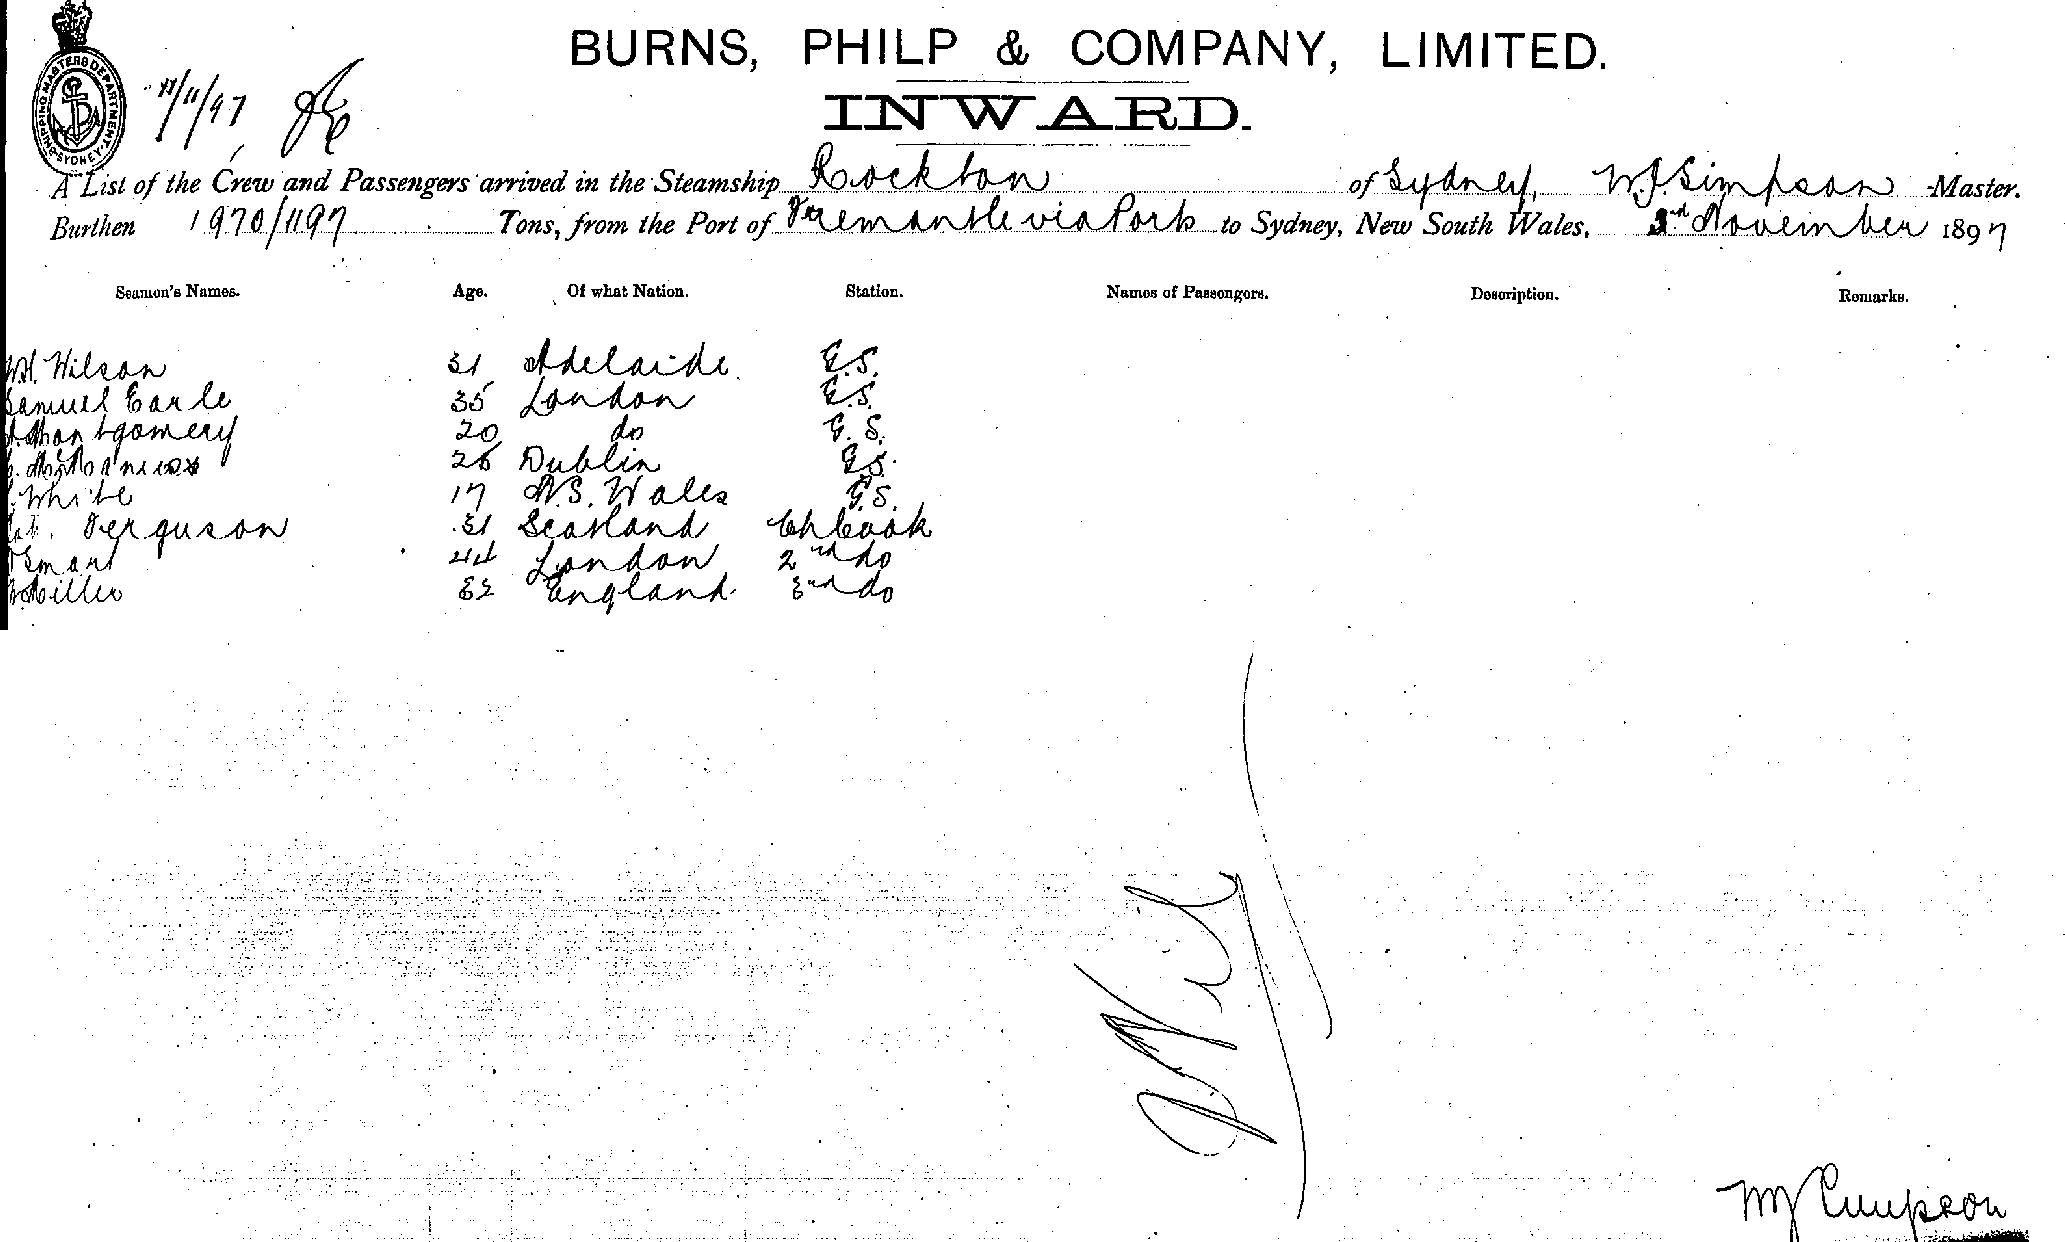 BURNS, PHILP & COMPANY, LIMITED.
INWARD.
SHIPPING MASTERS DEPARTMENT SYDNEY
/11/97
A List of the Crew and Passengers arrived in the Steamship Rockton of Sydney, W.J. Simpson Master.
Burthen 1970/1197 Tons, from the Port of Fremantle via Ports to Sydney, New South Wales, 3rd November 1897
Seamen's Names. Age. Of what Nation. Station. Names of Passengers. Description. Remarks.
W.H. Wilson 31 Adelaide G.S.
Samuel Earle 35 London G.S.
Montgomery 20 do G.S.
McManus 26 Dublin G.S.
White 17 N.S. Wales G.S.
Ferguson 31 Scotland Ch Cook
Smart 44 London 2nd do
Miller 32 England 3rd do
Nil
WJ Simpson